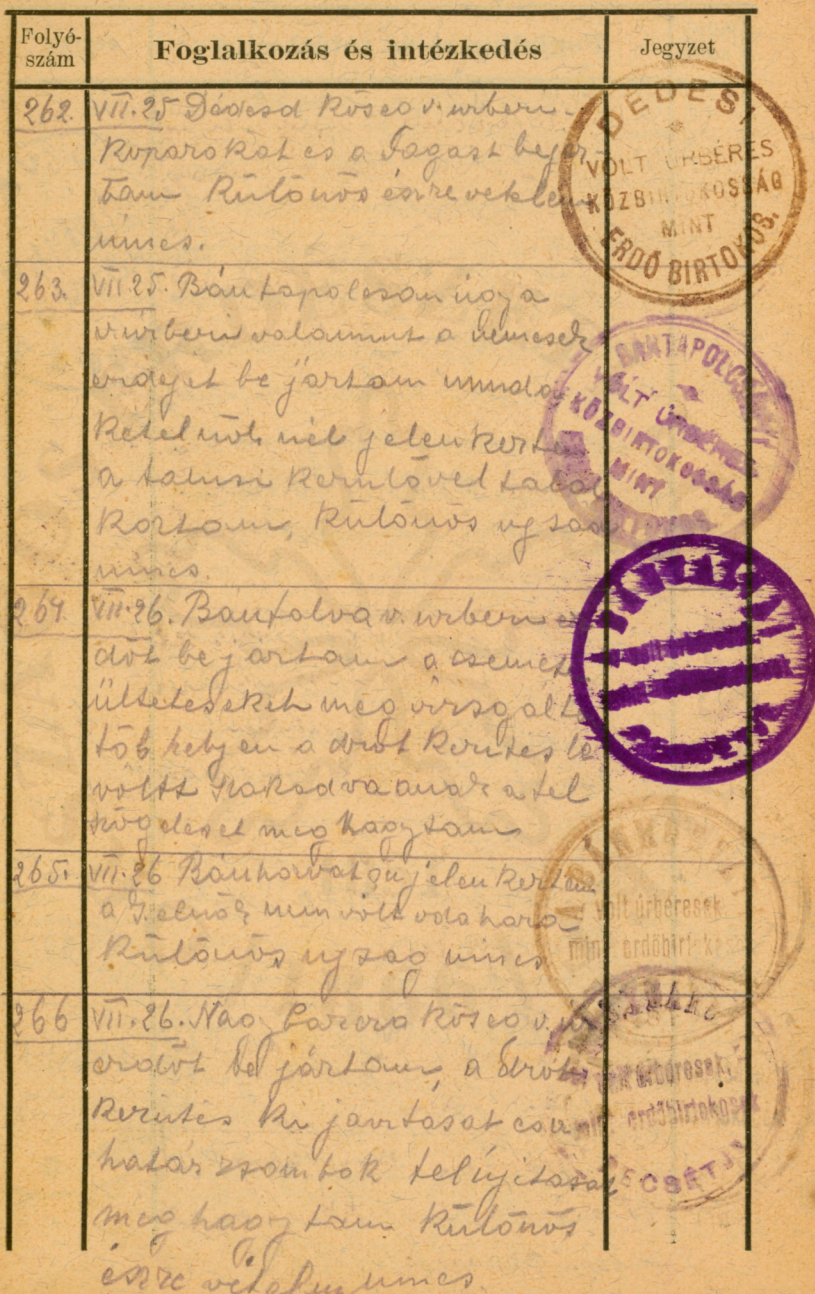 Folyó-
szám
Foglalkozás és intézkedés
Jegyzet
262. VII. 25 Dédesd község v. urberi
Koparokat és a Fagast bejár
tam Különös észre veklem
nincs.
DEDESI
VOLT URBÉRES
KÖZBIRTOKOSSÁG
MINT
ERDŐ BIRTOKOS.
263. VII 25. Bántapolcsan úgy a
v. urberi valamint a nemesek
erdejét be jártam minda
két elnök nél jelenkeztem
a tanusi kerülővel talál
koztam, Különös ujság
nincs.
BÁNTAPOLCSÁNYI
VOLT ÚRBÉRES
KÖZBIRTOKOSSÁG
MINT
264 VII. 26. Bántalva v. urberi e
dőt be jártam a csemet
ültetéseket meg virsgált
töb helyjen a drót Kerites le
vóltt szakadva annak a fel
szögeleset meg hagytam
265. VII. 26 Bánhorvatin jelenkeztem
a elnök nem vólt oda haza
Különös ujsag nincs
volt úrbéresek
mint erdőbirtokosok
266 VII. 26. Nagy barca község v. u
erdőt be jártam, a drót
Kerites ki javitását
határ zsombok felújitását
meg hagytam Különös
észre vételem nincs.
volt úrbéresek,
mint erdőbirtokosok
PECSÉTJE